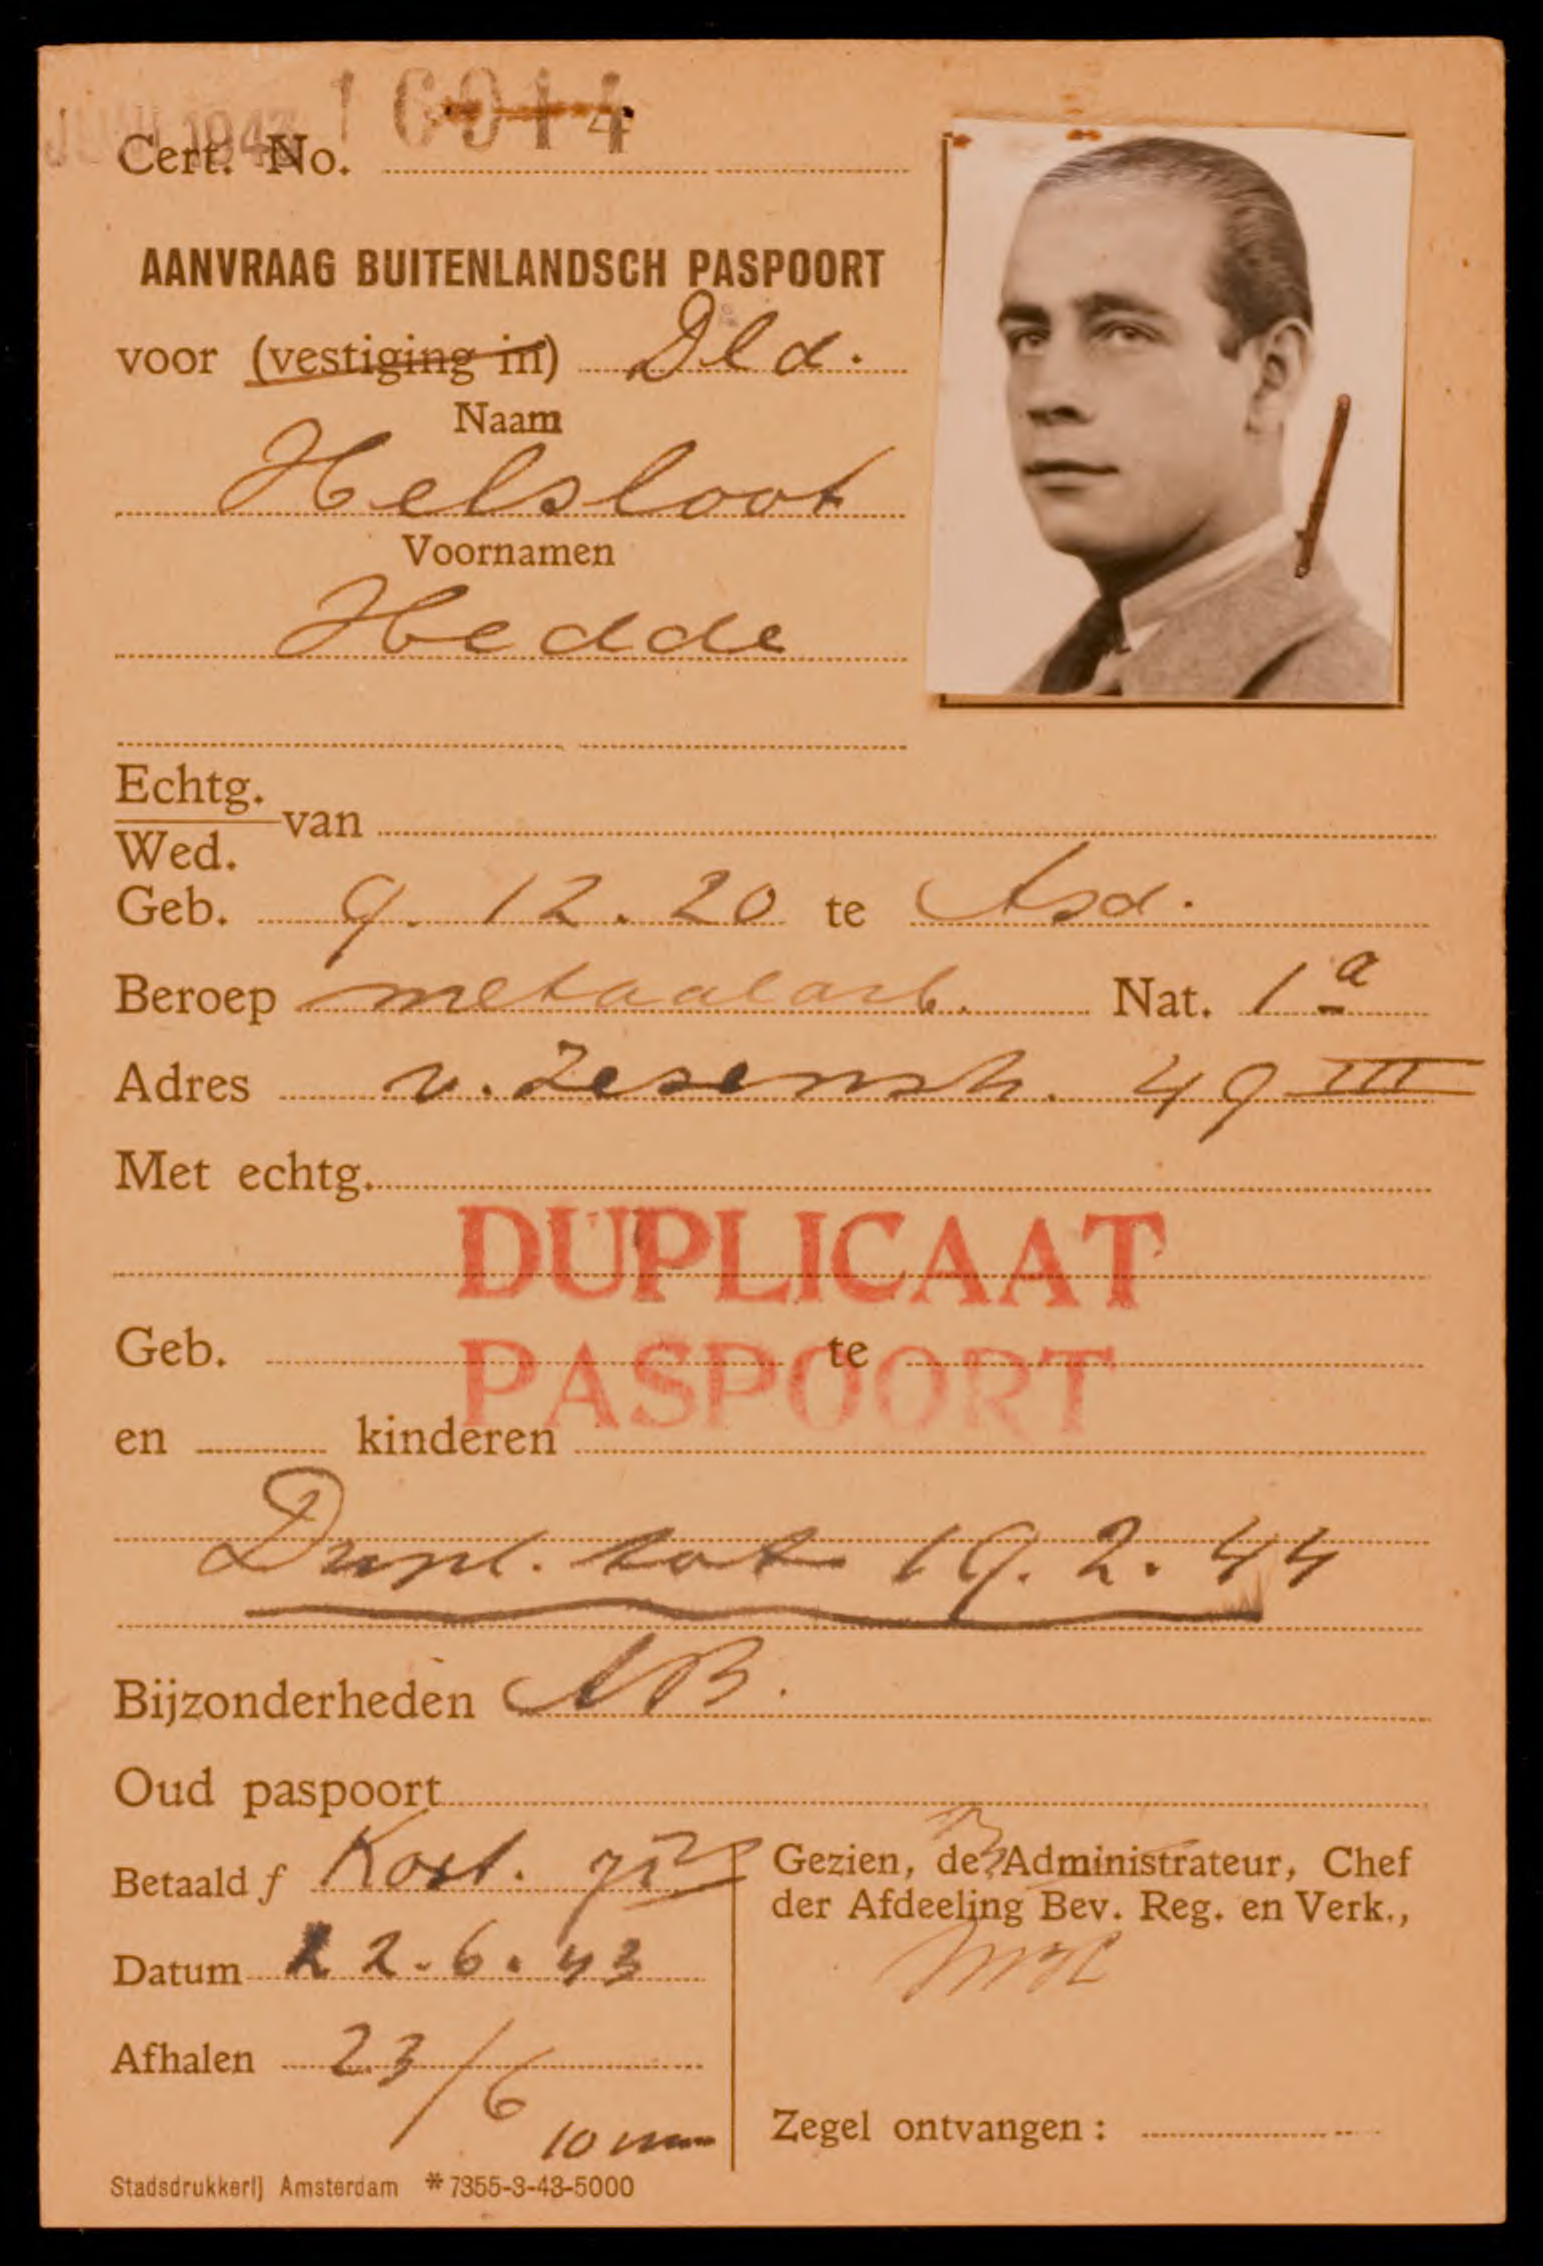 JUNI 1943 16014
Cert. No.
AANVRAAG BUITENLANDSCH PASPOORT
voor (vestiging in) Dld.
Naam
Helsloot
Voornamen
Hedde
Echtg.
van
Wed.
Geb. 9. 12. 20 te Asd.
Beroep metaalarb. Nat. 1a
Adres v. Zesenstr. 49 III
Met echtg.
DUPLICAAT
Geb. te
PASPOORT
en kinderen
Dupl. tot 19. 2. 44
Bijzonderheden AB.
Oud paspoort
Betaald f Kost.
Gezien, de Administrateur, Chef
der Afdeeling Bev. Reg. en Verk.,
Datum 22.6.43
Afhalen 23/6
10 uur
Zegel ontvangen:
Stadsdrukkerij Amsterdam * 7355-3-43-5000